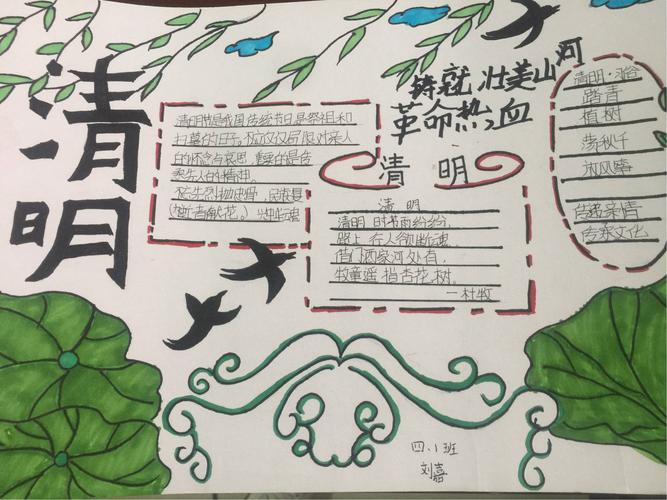 清明
铸就壮美山河
革命热血
清明节是我国传统节日是祭祖和
扫墓的日子。不应仅仅局限对亲人
的怀念与哀思,重要的是传
承先人的精神。
清明
清明
清明时节雨纷纷,
路上行人欲断魂。
借问酒家何处有,
牧童遥指杏花树。
一杜牧
清明·习俗
踏青
植树
荡秋千
放风筝
传承文化
四.1班
刘嘉